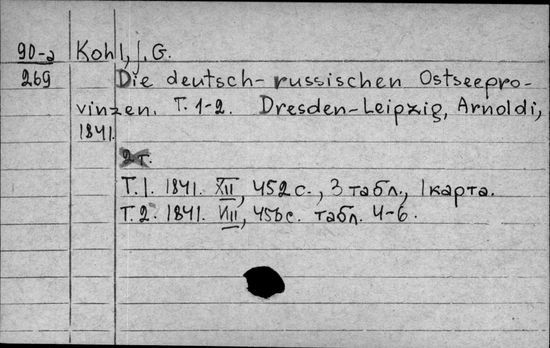 90-a Kohl, J. G.
269 Die deutsch-russischen Ostseepro-
vinzen. Т. 1-2. Dresden-Leipzig, Arnoldi,
1841.
2 т.
Т. 1. 1841. XII, 452 с., 3 табл., 1 карта.
Т. 2. 1841. VIII, 456 с. табл. 4-6.